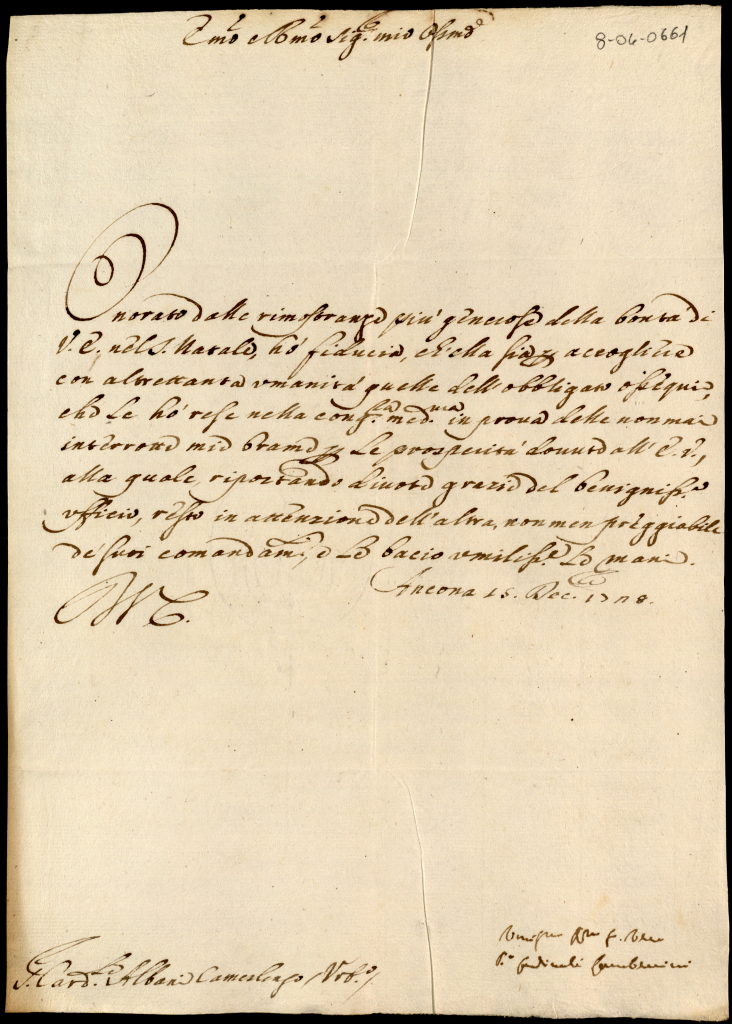 Emõ e Rmõ Sig.re mio Ossmo
8-06-0661
Onorato dalle rimostranze piú generose della bontá di
V. E. nel S. Natale, hó fiducia, ch'ella sia per accogliere
con altrettanta umanitá quelle dell'obbligato ossequio,
che Le hó rese nella cong.ra med.ma in prova delle non mai
interrotte mie brame per Le prosperitá dovute all'E. V.,
alla quale, riportando divote grazie del benigniss.o
ufficio, resto in attenzione dell'altra, non men preggiabile
de' suoi comandam.ti, e Le bacio umiliss.e Le mani.
Ancona 15. Dec.re 1728.
V. E.
S. Card.le Albani Camerlengo /Urb.o/